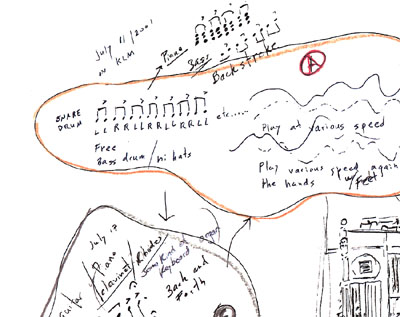 July 11/2001
on KLM
Piano
Bass
Backstroke
A
SNARE
DRUM
L L R R L L R R L L R R L L
etc....
Free
Bass drum / hi hats
Play at various speed
Play various speed again
the hands w/ Feet
July 17
Guitar / Piano
Clavinet / Rhodes
Some Kind of Organ
Keyboard
Back and
Forth